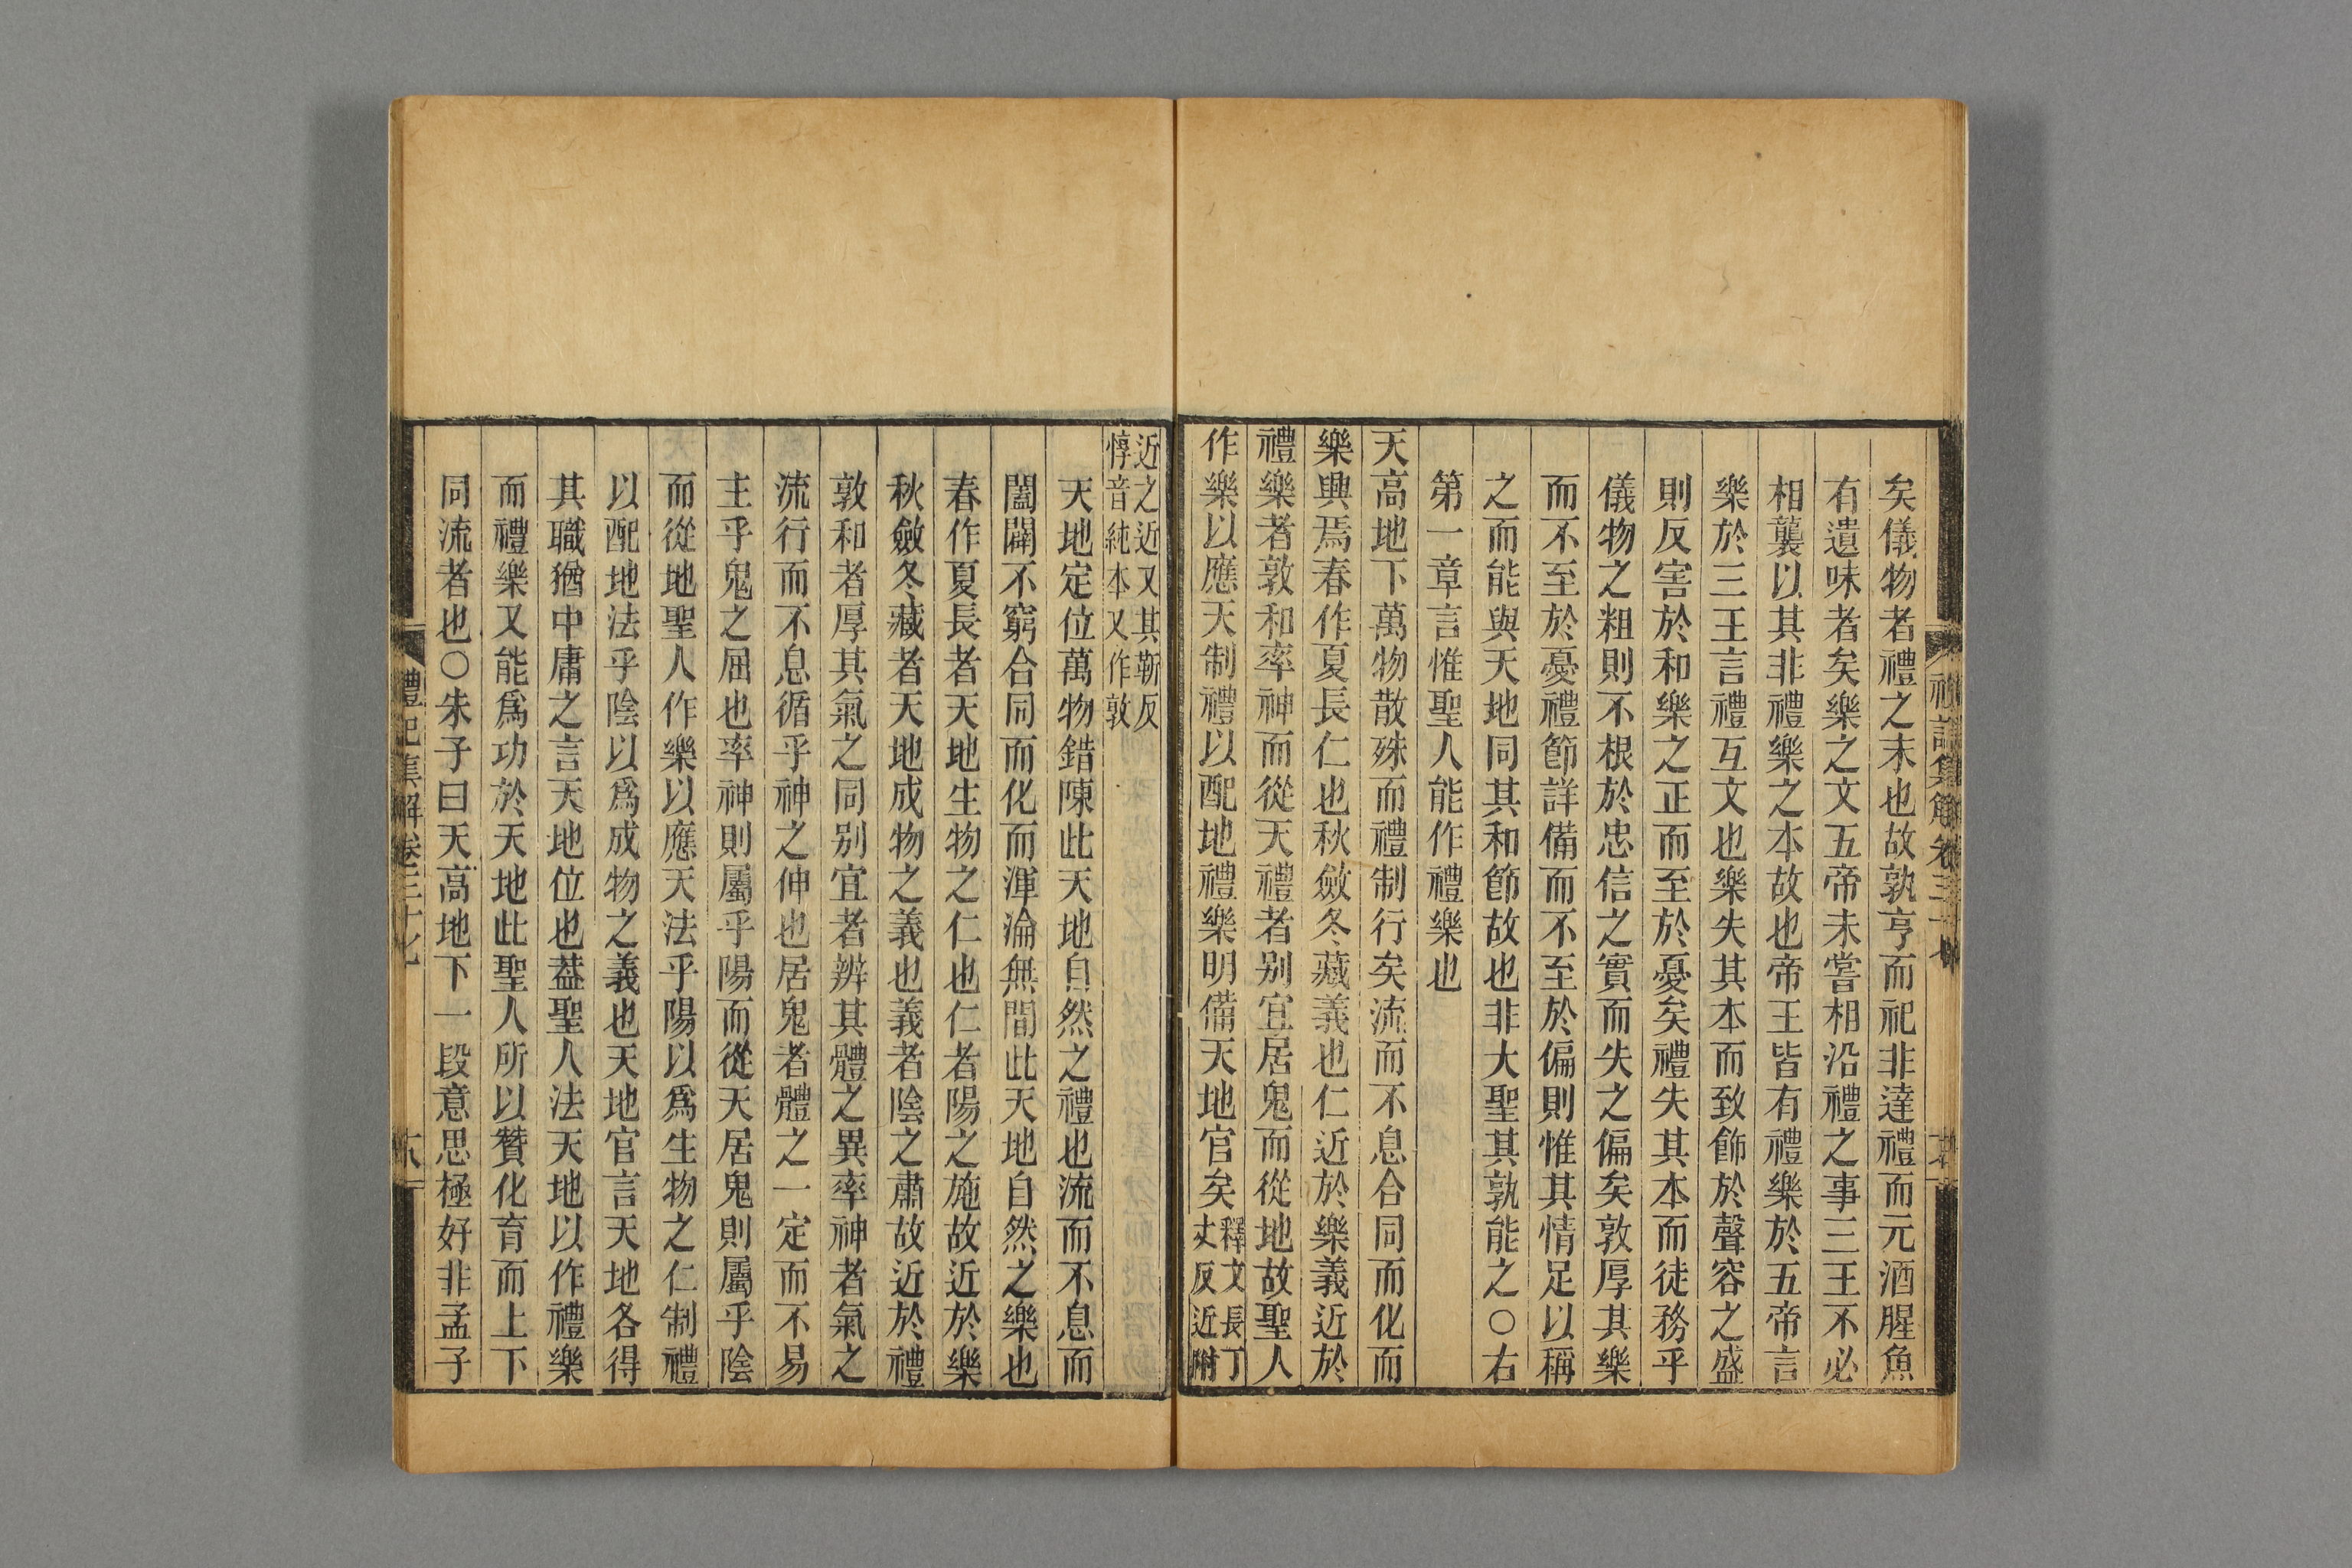 矣儀物者禮之末也故孰亨而祀非達禮而元酒腥魚
有遺味者矣樂之文五帝未嘗相沿禮之事三王不必
相襲以其非禮樂之本故也帝王皆有禮樂於五帝言
樂於三王言禮互文也樂失其本而致飾於聲容之盛
則反害於和樂之正而至於憂矣禮失其本而徒務乎
儀物之粗則不根於忠信之實而失之偏矣敦厚其樂
而不至於憂禮節詳備而不至於偏則惟其情足以稱
之而能與天地同其和節故也非大聖其孰能之○右
第一章言惟聖人能作禮樂也
天高地下萬物散殊而禮制行矣流而不息合同而化而
樂興焉春作夏長仁也秋斂冬藏義也仁近於樂義近於
禮樂者敦和率神而從天禮者別宜居鬼而從地故聖人
作樂以應天制禮以配地禮樂明備天地官矣釋文長丁
丈反近附
近之近又其靳反
惇音純本又作敦
天地定位萬物錯陳此天地自然之禮也流而不息而
闔闢不窮合同而化而渾淪無間此天地自然之樂也
春作夏長者天地生物之仁也仁者陽之施故近於樂
秋斂冬藏者天地成物之義也義者陰之肅故近於禮
敦和者厚其氣之同別宜者辨其體之異率神者氣之
流行而不息循乎神之伸也居鬼者體之一定而不易
主乎鬼之屈也率神則屬乎陽而從天居鬼則屬乎陰
而從地聖人作樂以應天法乎陽以爲生物之仁制禮
以配地法乎陰以爲成物之義也天地官言天地各得
其職猶中庸之言天地位也葢聖人法天地以作禮樂
而禮樂又能爲功於天地此聖人所以贊化育而上下
同流者也○朱子曰天高地下一段意思極好非孟子
禮記集解卷三十七